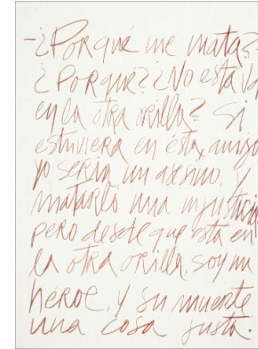 -¿Porqué me mata?
¿Porqué? ¿No está
en la otra orilla? Si
estuviera en ésta, amigo
yo sería un asesino. y
matarlo una injusticia
pero desde que está en
la otra orilla, soy un
héroe, y su muerte
una cosa justa.